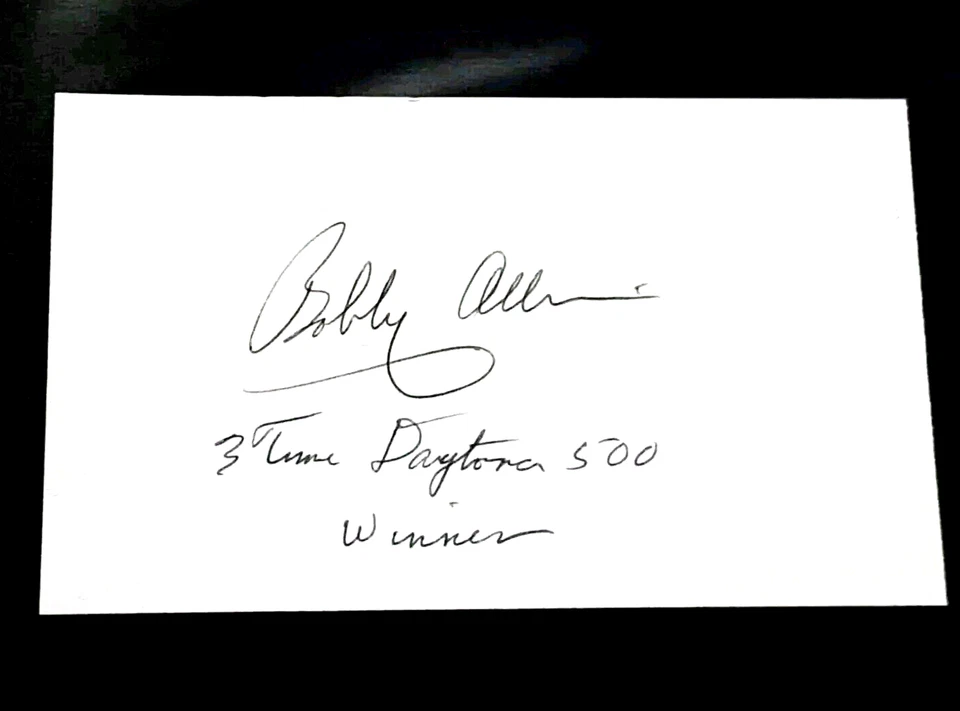 Bobby Allison
3 Time Daytona 500
Winner